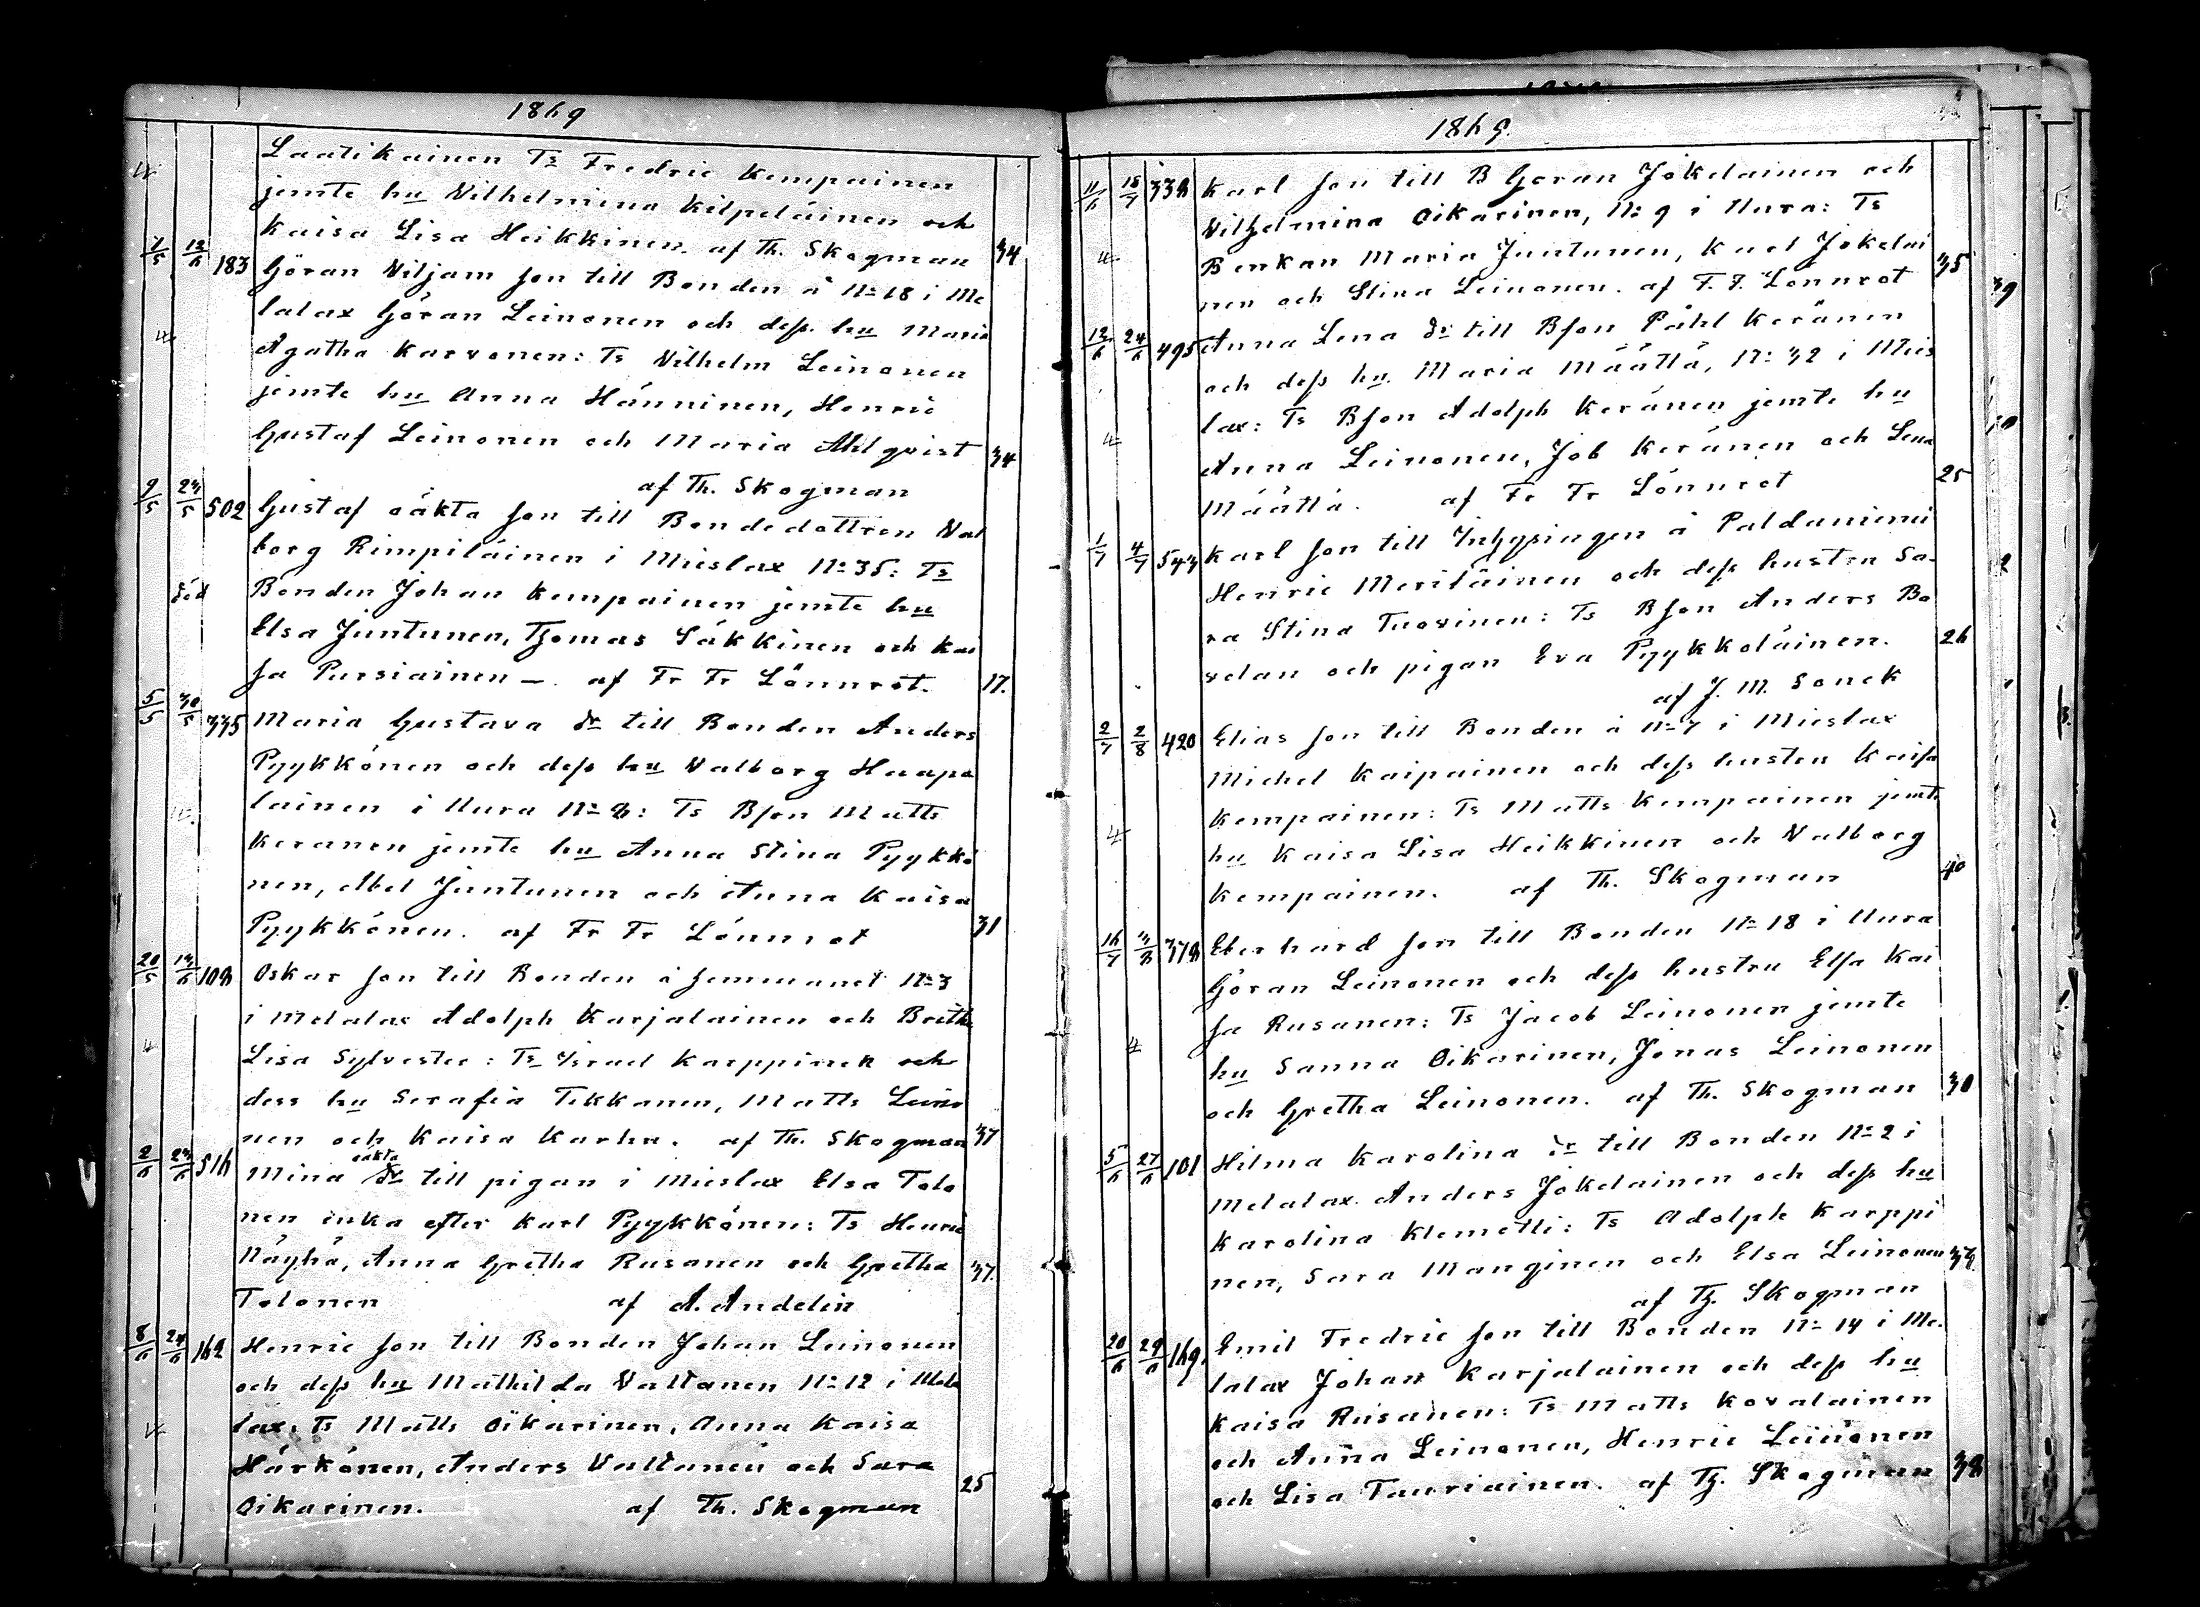 1869
Laatikainen Ts Fredric Kempainen
jemte hu Vilhelmina Kilpeläinen och
Kaisa Lisa Heikkinen. af Th. Skogman 34
7/5 13/6 183 Göran Viljam son till Bonden å No 18 i Me
lalax Göran Leinonen och dess hu Maria
Agatha Karvonen: Ts Vilhelm Leinonen
jemte hu Anna Hänninen, Henric
Gustaf Leinonen och Maria Ahlqvist 34
af Th. Skogman
9/5 23/5 502 Gustaf oäkta son till Bondedottren Val
borg Rimpiläinen i Mieslax No 35: Ts
Bonden Johan Kempainen jemte hu
död
Elsa Juntunen, Thomas Säkkinen och Kai
sa Pursiainen — af Fr Fr Lönnrot. 17.
5/5 30/5 335 Maria Gustava dr till Bonden Anders
Pyykkönen och dess hu Valborg Haapa
lainen i Uura No 8: Ts Bson Matts
Keränen jemte hu Anna Stina Pyykkö
nen, Abel Juntunen och Anna Kaisa
Pyykkönen. af Fr Fr Lönnrot 31
20/5 13/6 108 Oskar son till Bonden å hemmanet No 3
i Melalax Adolph Karjalainen och Breta
Lisa Sylvester: Ts Israel Karppinen och
dess hu Serafia Tikkanen, Matts Leino
nen och Kaisa Karhu. af Th. Skogman 37
2/6 23/6 516 Mina oäkta dr till pigan i Mieslax Elsa Tolo
nen enka efter Karl Pyykkönen: Ts Henric
Näyhä, Anna Gretha Rusanen och Gretha 37.
Tolonen af A. Andelin
8/6 24/6 162 Henric son till Bonden Johan Leinonen
och dess hu Mathilda Valtanen No 12 i Mela
lax: Ts Matts Oikarinen, Anna Kaisa
Härkönen, Anders Valtanen och Sara
Oikarinen. af Th. Skogman 25
1869.
11/6 18/7 338 Karl son till B Göran Jokelainen och
Vilhelmina Oikarinen, No 9 i Uura: Ts
Benkan Maria Juntunen, Karl Jokelai
nen och Stina Leinonen. af F. F. Lönnrot 35
12/6 24/6 495 Anna Lena dr till Bson Påhl Keränen
och dess hu Maria Määttä, No 32 i Mies
lax: Ts Bson Adolph Keränen jemte hu
Anna Leinonen, Job Keränen och Lena
Määttä. af Fr Fr Lönnrot 25
1/7 4/7 543 Karl son till Inhysingen å Paldaniemi
Henric Meriläinen och dess hustru Sa-
ra Stina Tuovinen: Ts Bson Anders Bo
velan och pigan Eva Pyykköläinen. 26
af J. M. Sonck
2/7 2/8 420 Elias son till Bonden å No 7 i Mieslax
Michel Kaipainen och dess hustru Kaisa
Kempainen: Ts Matts Kempainen jemte
hu Kaisa Lisa Heikkinen och Valborg
Kempainen. af Th. Skogman 40
16/7 3/8 378 Eberhard son till Bonden No 18 i Uura
Göran Leinonen och dess hustru Elsa Kai
sa Rusanen: Ts Jacob Leinonen jemte
hu Sanna Oikarinen, Jonas Leinonen
och Gretha Leinonen. af Th. Skogman 30
5/6 27/6 101 Hilma Karolina dr till Bonden No 2 i
Melalax Anders Jokelainen och dess hu
Karolina Klemetti: Ts Adolph Karppi
nen, Sara Manginen och Elsa Leinonen
af Th. Skogman
20/6 29/6 169. Emil Fredric son till Bonden No 14 i Me-
lalax Johan Karjalainen och dess hu
Kaisa Rusanen: Ts Matts Kovalainen
och Anna Leinonen, Henric Leinonen
och Lisa Tauriainen. af Th. Skogman 38